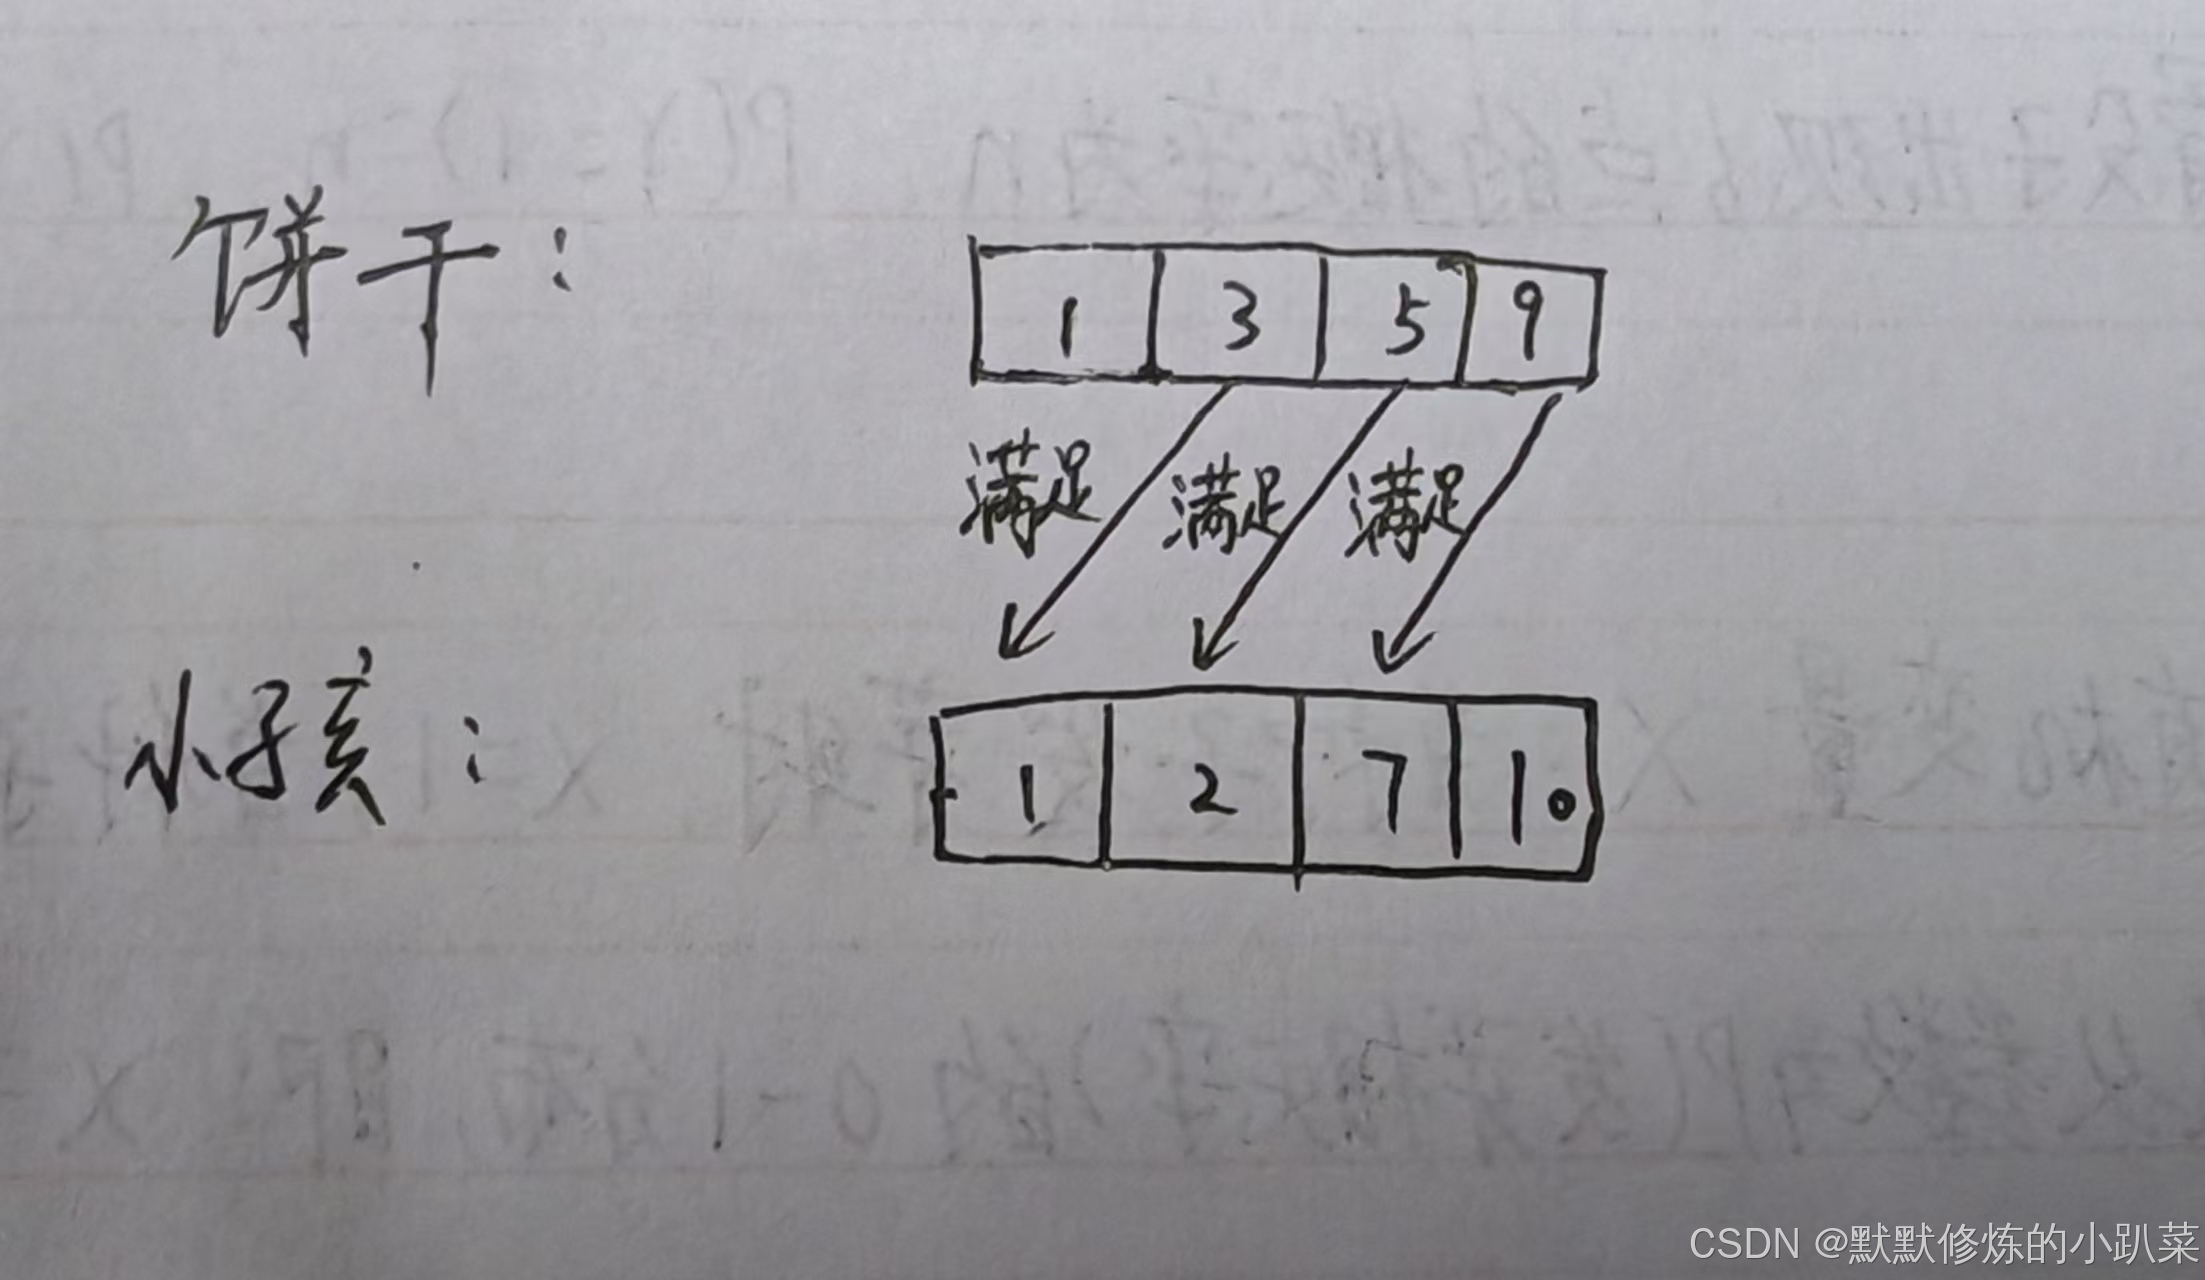 饼干：
1 3 5 9
满足 满足 满足
小孩：
1 2 7 10
CSDN @默默修炼的小趴菜